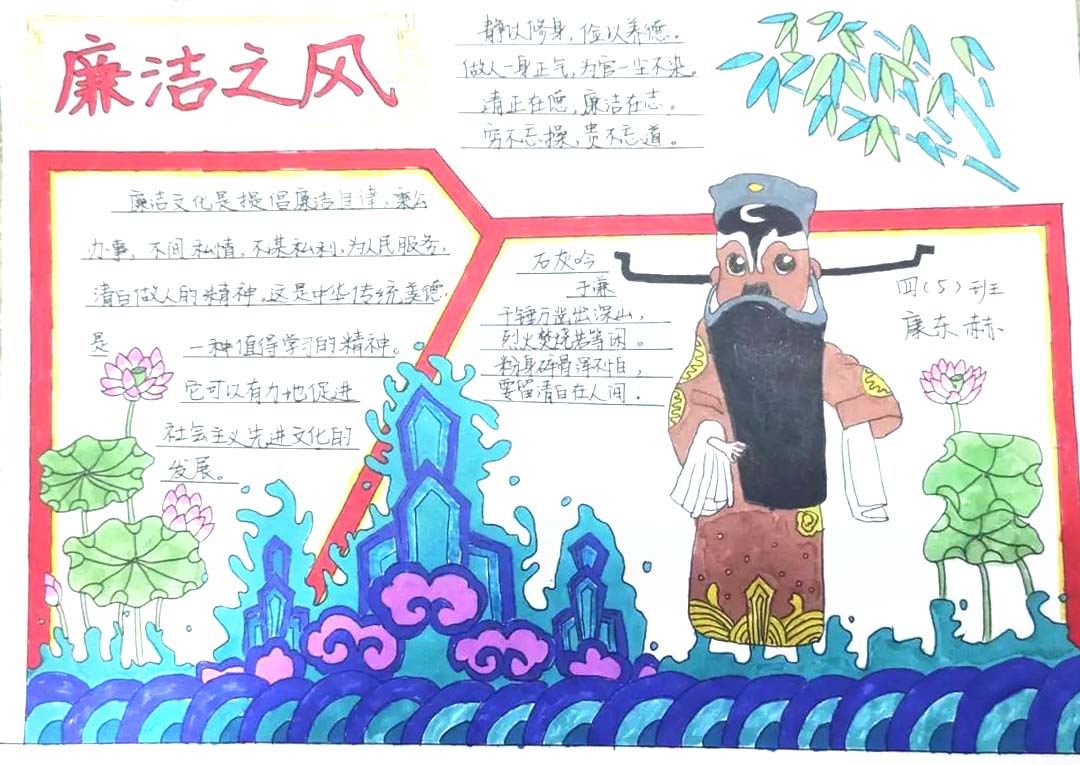 廉洁之风
静以修身，俭以养德。
做人一身正气，为官一尘不染。
清正在德，廉洁在志。
穷不忘操，贵不忘道。
廉洁文化是提倡廉洁自律，秉公
办事，不间私情，不某私利，为人民服务，
清白做人的精神。这是中华传统美德
是 一种值得学习的精神。
它可以有力地促进
社会主义先进文化的
发展。
石灰吟
于谦
千锤万凿出深山，
烈火焚烧若等闲。
粉身碎骨浑不怕，
要留清白在人间。
四（5）班
康东赫